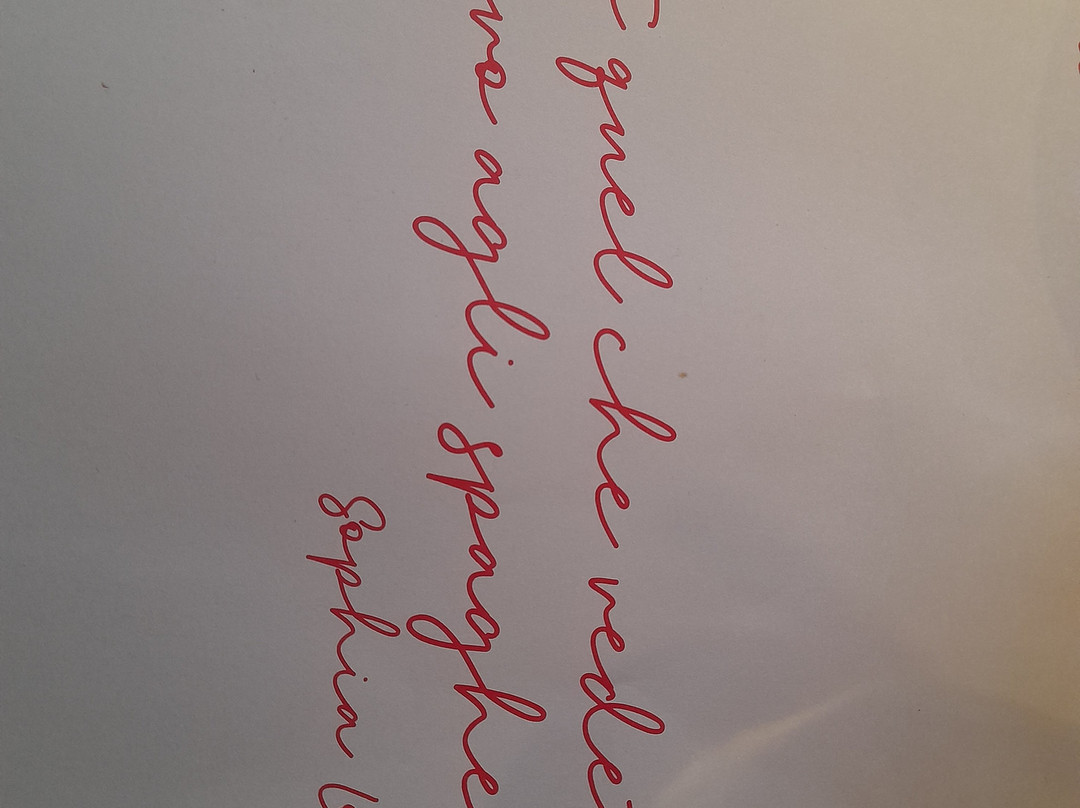 quel che vede
agli spaghe
Sophia